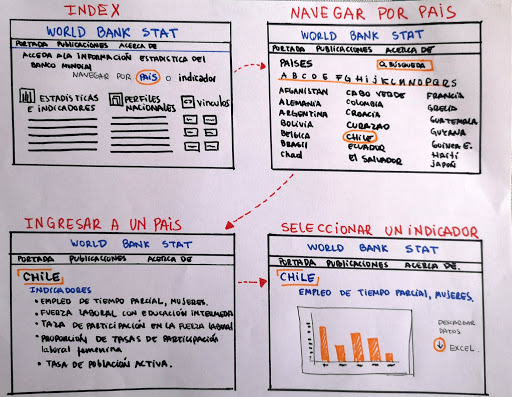 INDEX
WORLD BANK STAT
PORTADA PUBLICACIONES ACERCA DE
ACCEDA A LA INFORMACIÓN ESTADISTICA DEL
BANCO MUNDIAL
NAVEGAR POR PAIS O indicador
ESTADÍSTICAS
E INDICADORES
PERFILES
NACIONALES
VINCULOS
NAVEGAR POR PAIS
WORLD BANK STAT
PORTADA PUBLICACIONES ACERCA DE
PAISES
BÚSQUEDA
A B C D E F G H I J K L M N O P Q R S
AFGANISTAN CABO VERDE FRANCIA
ALEMANIA COLOMBIA GRECIA
ARGENTINA CROACIA GUATEMALA
BOLIVIA CURAZAO GUYANA
BELGICA CHILE GUINEA E.
BRASIL ECUADOR Haití
Chad EL SALVADOR JAPÓN
INGRESAR A UN PAIS
WORLD BANK STAT
PORTADA PUBLICACIONES ACERCA DE
CHILE
INDICADORES
• EMPLEO DE TIEMPO PARCIAL, MUJERES.
• FUERZA LABORAL CON EDUCACIÓN INTERMEDIA
• TAZA DE PARTICIPACIÓN EN LA FUERZA LABORAL
• PROPORCIÓN DE TASAS DE PARTICIPACIÓN
laboral femenina
• TASA DE POBLACIÓN ACTIVA.
SELECCIONAR UN INDICADOR
WORLD BANK STAT
PORTADA PUBLICACIONES ACERCA DE.
CHILE
EMPLEO DE TIEMPO PARCIAL, MUJERES.
DESCARGAR
DATOS
EXCEL.